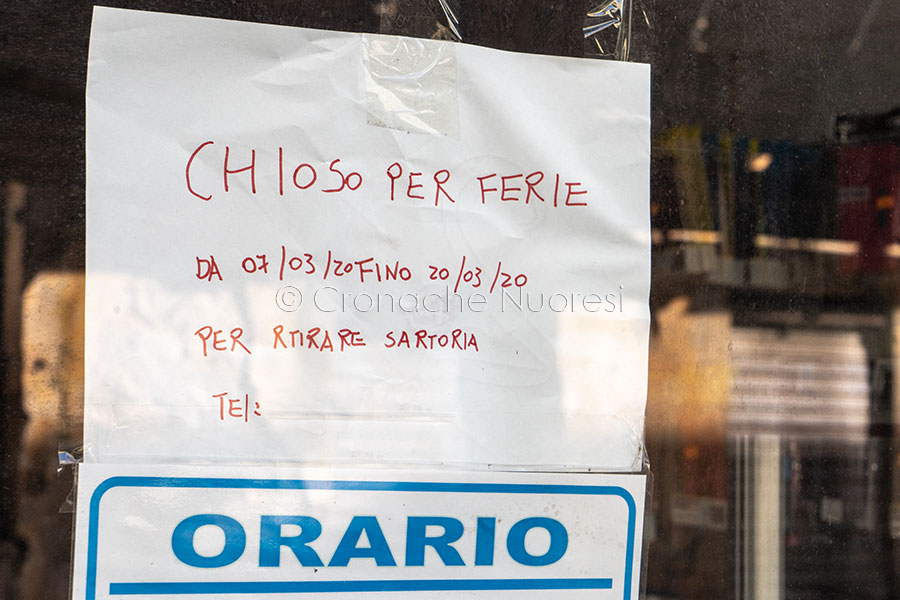 CHIOSO PER FERIE
DA 07/03/20 FINO 20/03/20
© Cronache Nuoresi
PER RTIRARE SARTORIA
TEL:
ORARIO